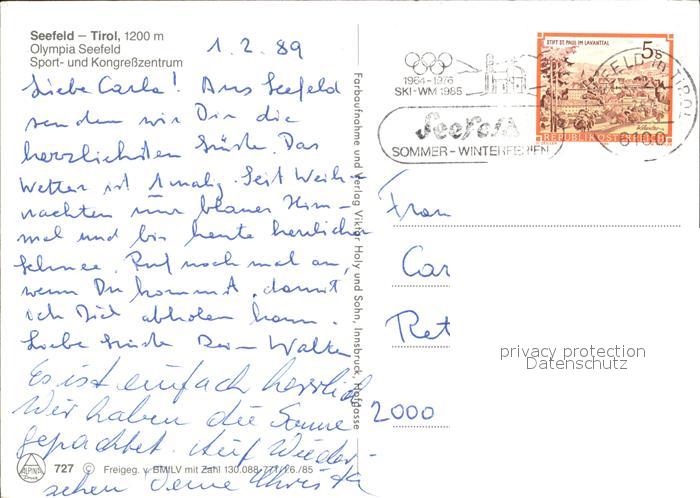 Seefeld – Tirol, 1200 m
Olympia Seefeld
Sport- und Kongreßzentrum
1.2.89
Liebe Carla! Aus Seefeld
senden wir Dir die
herzlichsten Grüße. Das
Wetter ist 1malig. Seit Weih-
nachten nur blauer Him-
mel und bis heute herrlicher
Schnee. Ruf noch mal an,
wenn Du kommst, damit
ich Dich abholen kann.
Liebe Grüße Dein Walter
Es ist einfach herrlich
Wir haben die Sonne
gepachtet. Auf Wieder-
sehen Deine Christa
ALPINA
727 © Freigeg. v. BMfLV mit Zahl 130.088-771/26./85
Farbaufnahme und Verlag Viktor Holy und Sohn, Innsbruck, Hofgasse
1964-1976
SKI-WM 1985
Seefeld
SOMMER-WINTERFERIEN
STIFT ST. PAUL IM LAVANTTAL
5s
REPUBLIK ÖSTERREICH
SEEFELD in TIROL
6100
Frau
Car
Ret
2000
privacy protection
Datenschutz